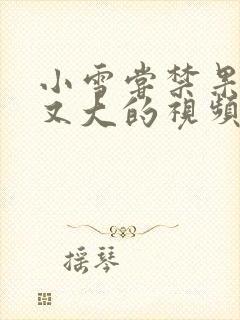 小雪嘗禁果
又大的視頻
摇琴